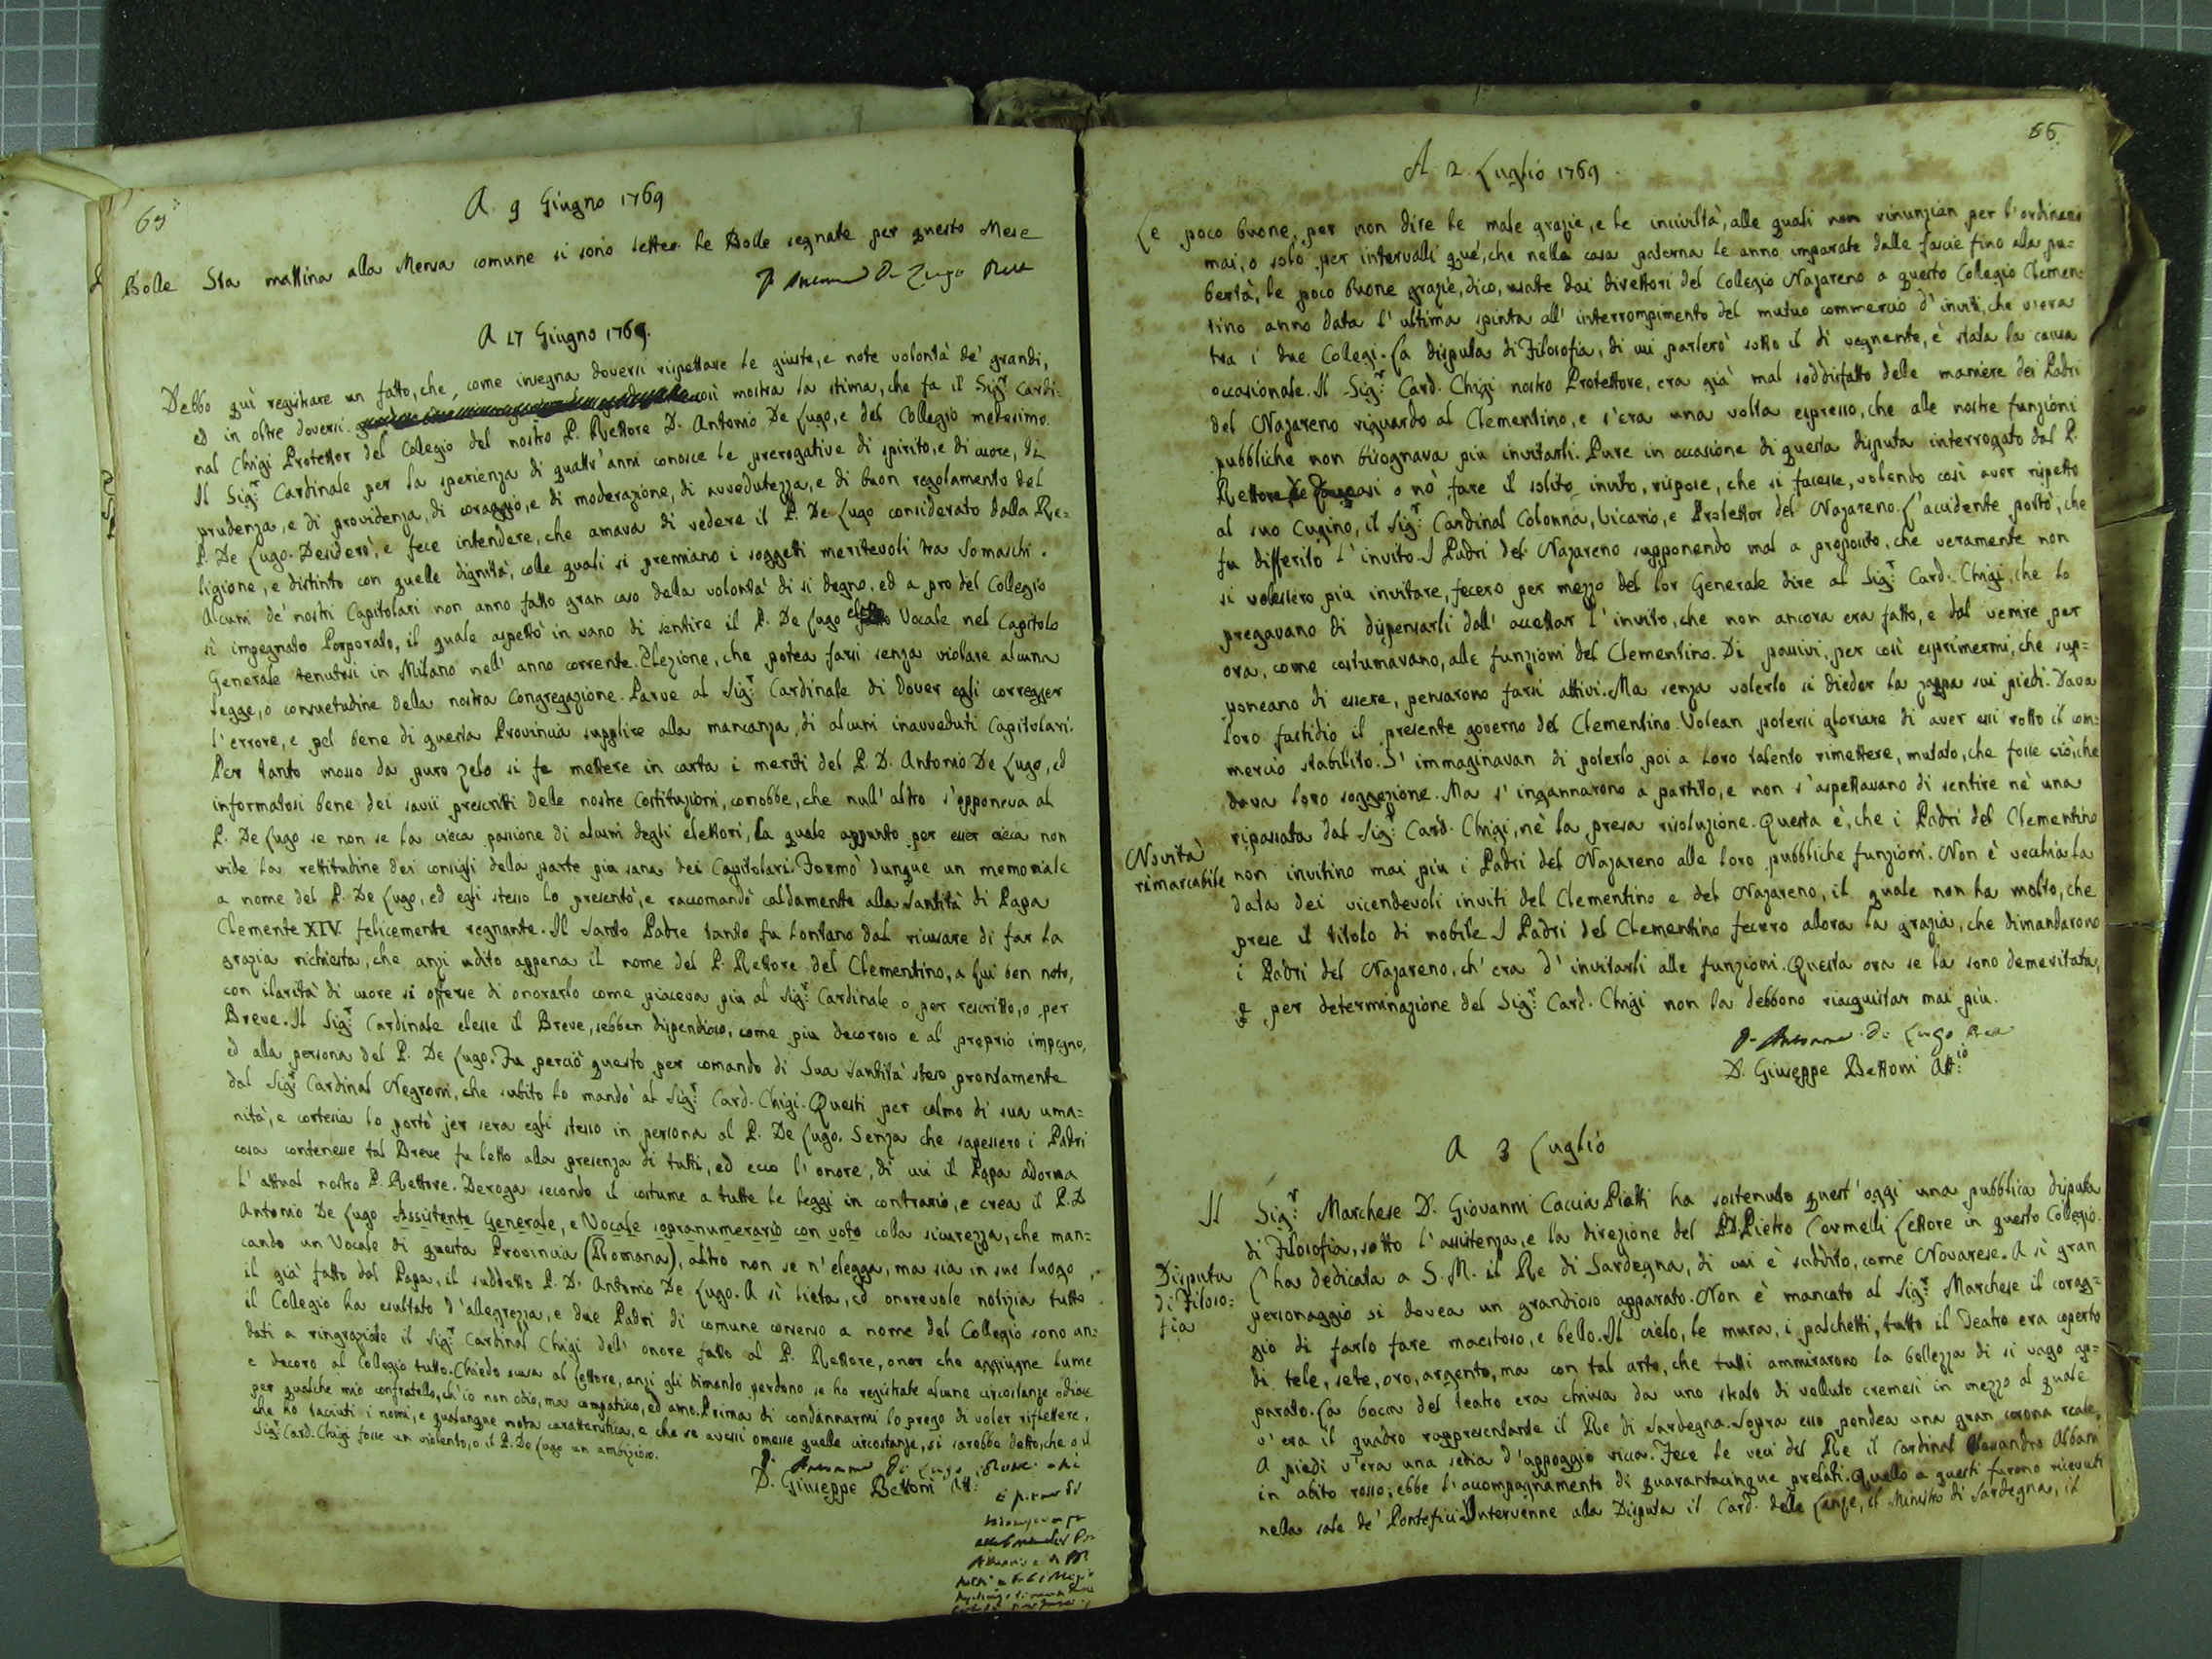 69
A 9 Giugno 1769
Bolle Sta mattina alla Mensa comune si sono lette le Bolle segnate per questo Mese
De Lugo Rett
A 17 Giugno 1769.
Debbo quì registrare un fatto, che, come insegna doversi rispettare le giuste, e note volontà de' grandi,
ed in oltre doversi così mostra la stima, che fa il Sigr Cardi:
nal Chigi Protettor del Collegio del nostro P. Rettore D. Antonio De Lugo, e del Collegio medesimo.
Il Sigr Cardinale per la sperienza di quattr'anni conosce le prerogative di spirito, e di cuore, di
prudenza, e di providenza, di coraggio, e di moderazione, di avvedutezza, e di buon regolamento del
P. De Lugo. Desiderò, e fece intendere, che amava di vedere il P. De Lugo considerato dalla Re=
ligione, e distinto con quelle dignità, colle quali si premiano i soggetti meritevoli tra Somaschi.
Alcuni de' nostri Capitolari non anno fatto gran caso della volontà di si degno, ed a pro del Collegio
sì impegnato Porporato, il quale aspettò in vano di sentire il P. De Lugo Vocale nel Capitolo
Generale tenutosi in Milano nell' anno corrente. Elezione, che potea farsi senza violare alcuna
legge, o consuetudine della nostra Congregazione. Parve al Sigr Cardinale di dover egli corregger
l'errore, e pel bene di questa Provincia supplire alla mancanza di alcuni inavveduti Capitolari.
Per tanto mosso da puro zelo si fe mettere in carta i meriti del P. D. Antonio De Lugo, ed
informatosi bene dei savii prescritti delle nostre Costituzioni, conobbe, che null'altro s'opponeva al
P. De Lugo se non se la cieca passione di alcuni degli elettori, la quale appunto per esser cieca non
vide la rettitudine dei consigli della parte più sana dei Capitolari. Formò dunque un memoriale
a nome del P. De Lugo, ed egli stesso lo presentò, e raccomandò caldamente alla Santità di Papa
Clemente XIV. felicemente regnante. Il Santo Padre tanto fu lontano dal ricusare di far la
grazia richiesta, che anzi udito appena il nome del P. Rettore del Clementino, a lui ben noto,
con ilarità di cuore si offerse di onorarlo come piaceva più al Sigr Cardinale o per rescritto, o per
Breve. Il Sigr Cardinale elesse il Breve, sebben dispendioso, come piu decoroso e al proprio impegno,
ed alla persona del P. De Lugo. Fu perciò questo per comando di Sua Santità steso prontamente
dal Sigr Cardinal Negroni, che subito lo mandò al Sigr Card. Chigi. Questi per colmo di sua uma=
nità, e cortesia lo portò jer sera egli stesso in persona al P. De Lugo. Senza che sapessero i Padri
cosa contenesse tal Breve fu letto alla presenza di tutti, ed ecco l'onore, di cui il Papa adorna
l'attual nostro P. Rettore. Deroga secondo il costume a tutte le leggi in contrario, e crea il P. D
Antonio De Lugo Assistente Generale, e Vocale sopranumerario con voto colla sicurezza, che man=
cando un Vocale di questa Provincia (Romana), altro non se n'elegga, ma sia in suo luogo
il già fatto dal Papa, il suddetto P. D. Antonio De Lugo. A sì lieta, ed onorevole notizia tutto
il Collegio ha esultato d'allegrezza, e due Padri di comune consenso a nome del Collegio sono an=
dati a ringraziare il Sigr Cardinal Chigi dell' onore fatto al P. Rettore, onor che aggiugne lume
e decoro al Collegio tutto. Chiedo scusa al Lettore, anzi gli dimando perdono se ho registrate alcune circostanze odiose
per qualche mio confratello, ch'io non odio, ma compatisco, ed amo. Prima di condannarmi lo prego di voler riflettere,
che ho taciuti i nomi, e qualunque nota caratteristica, e che se avessi omesse quelle circostanze, si sarebbe detto, che o il
Sigr Card. Chigi fosse un violento, o il P. De Lugo un ambizioso.
De Lugo
D. Giuseppe Bettoni Att:
66
A 2 Luglio 1769.
Le poco buone, per non dire le male grazie, e le inciviltà, alle quali non rinunzian per l'ordinario
mai, o solo per intervalli que', che nella casa paterna le anno imparate dalle fascie fino alla pu=
bertà, le poco buone grazie, dico, usate dai direttori del Collegio Nazareno a questo Collegio Clemen:
tino anno data l'ultima spinta all' interrompimento del mutuo commercio d'inviti, che v'era
tra i due Collegi. La disputa di Filosofia, di cui parlerò sotto il dì vegnente, è stata la causa
occasionale. Il Sigr Card. Chigi nostro Protettore, era già mal soddisfatto delle maniere dei Padri
del Nazareno riguardo al Clementino, e s'era una volta espresso, che alle nostre funzioni
pubbliche non bisognava più invitarli. Pure in occasione di questa disputa interrogato dal P.
Rettore o nò fare il solito invito, rispose, che si facesse, volendo così aver rispetto
al suo Cugino, il Sigr Cardinal Colonna, Vicario, e Protettor del Nazareno. L'accidente portò, che
fu differito l'invito. I Padri del Nazareno supponendo mal a proposito, che veramente non
si volessero più invitare, fecero per mezzo del lor Generale dire al Sigr Card. Chigi, che lo
pregavano di dispensarli dall' accettar l'invito, che non ancora era fatto, e dal venire per
ora, come costumavano, alle funzioni del Clementino. Di passivi, per così esprimermi, che sup=
poneano di essere, pensarono farsi attivi. Ma senza volerlo si dieder la zappa sui piedi. Dava
loro fastidio il presente governo del Clementino. Volean potersi gloriare di aver essi rotto il com=
mercio stabilito. S'immaginavan di poterlo poi a loro talento rimettere, mutato, che fosse ciò, che
dava loro soggezione. Ma s'ingannarono a partito, e non s'aspettavano di sentire nè una
ripassata dal Sigr Card. Chigi, nè la presa risoluzione. Questa è, che i Padri del Clementino
Novità
rimarcabile
non invitino mai più i Padri del Nazareno alle loro pubbliche funzioni. Non è vecchia la
data dei vicendevoli inviti del Clementino e del Nazareno, il quale non ha molto, che
prese il titolo di nobile. I Padri del Clementino fecero allora la grazia, che dimandarono
i Padri del Nazareno, ch'era d'invitarli alle funzioni. Questa ora se la sono demeritata,
e per determinazione del Sigr Card. Chigi non la debbono riacquistar mai più.
De Lugo
D. Giuseppe Bettoni Att:io
A 3 Luglio
Il Sigr Marchese D. Giovanni Caccia Piatti ha sostenuto quest'oggi una pubblica disputa
di Filosofia, sotto l'assistenza, e la direzione del P. D. Pietro Carmelli Lettore in questo Collegio.
Disputa
di Filoso=
fia
L'ha dedicata a S. M. il Re di Sardegna, di cui è suddito, come Novarese. A sì gran
personaggio si dovea un grandioso apparato. Non è mancato al Sigr Marchese il corag=
gio di farlo fare maestoso, e bello. Il cielo, le mura, i palchetti, tutto il Teatro era coperto
di tele, sete, oro, argento, ma con tal arte, che tutti ammirarono la bellezza di si vago ap=
parato. La bocca del teatro era chiusa da uno strato di velluto cremesi in mezzo al quale
v'era il quadro rappresentante il Re di Sardegna. Sopra esso pendea una gran corona reale,
A piedi v'era una sedia d'appoggio ricca. Fece le veci del Re il Cardinal Alessandro Albani
in abito rosso; ebbe l'accompagnamento di quarantacinque prelati. Quello e questi furono ricevuti
nella sale de' Pontefici. Intervenne alla Disputa il Card. delle Lanze, il Ministro di Sardegna, il